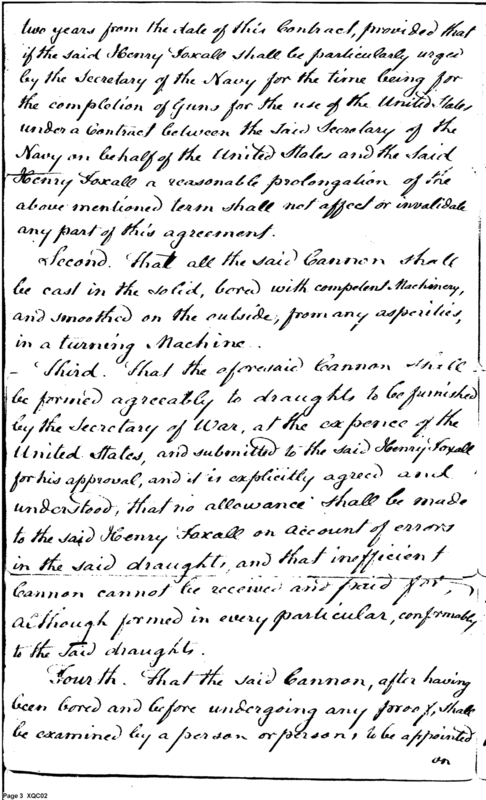 two years from the date of this Contract, provided that
if the said Henry Foxall shall be particularly urged
by the Secretary of the Navy for the time being for
the completion of Guns for the use of the United States
under a Contract between the said Secretary of the
Navy on behalf of the United States and the said
Henry Foxall a reasonable prolongation of the
above mentioned term shall not affect or invalidate
any part of this agreement.
Second. That all the said Cannon shall
be cast in the solid, bored with competent Machinery,
and smoothed on the outside, from any asperities,
in a turning Machine.
Third. That the aforesaid Cannon shall
be formed agreeably to draughts to be furnished
by the Secretary of War, at the expence of the
United States, and submitted to the said Henry Foxall
for his approval, and it is explicitly agreed and
understood, that no allowance shall be made
to the said Henry Foxall on account of errors
in the said draughts, and that inefficient
Cannon cannot be received and paid for,
although formed in every particular, conformably
to the said draughts.
Fourth. That the said Cannon, after having
been bored and before undergoing any proof, shall
be examined by a person or persons, to be appointed
on
Page 3 XQC02